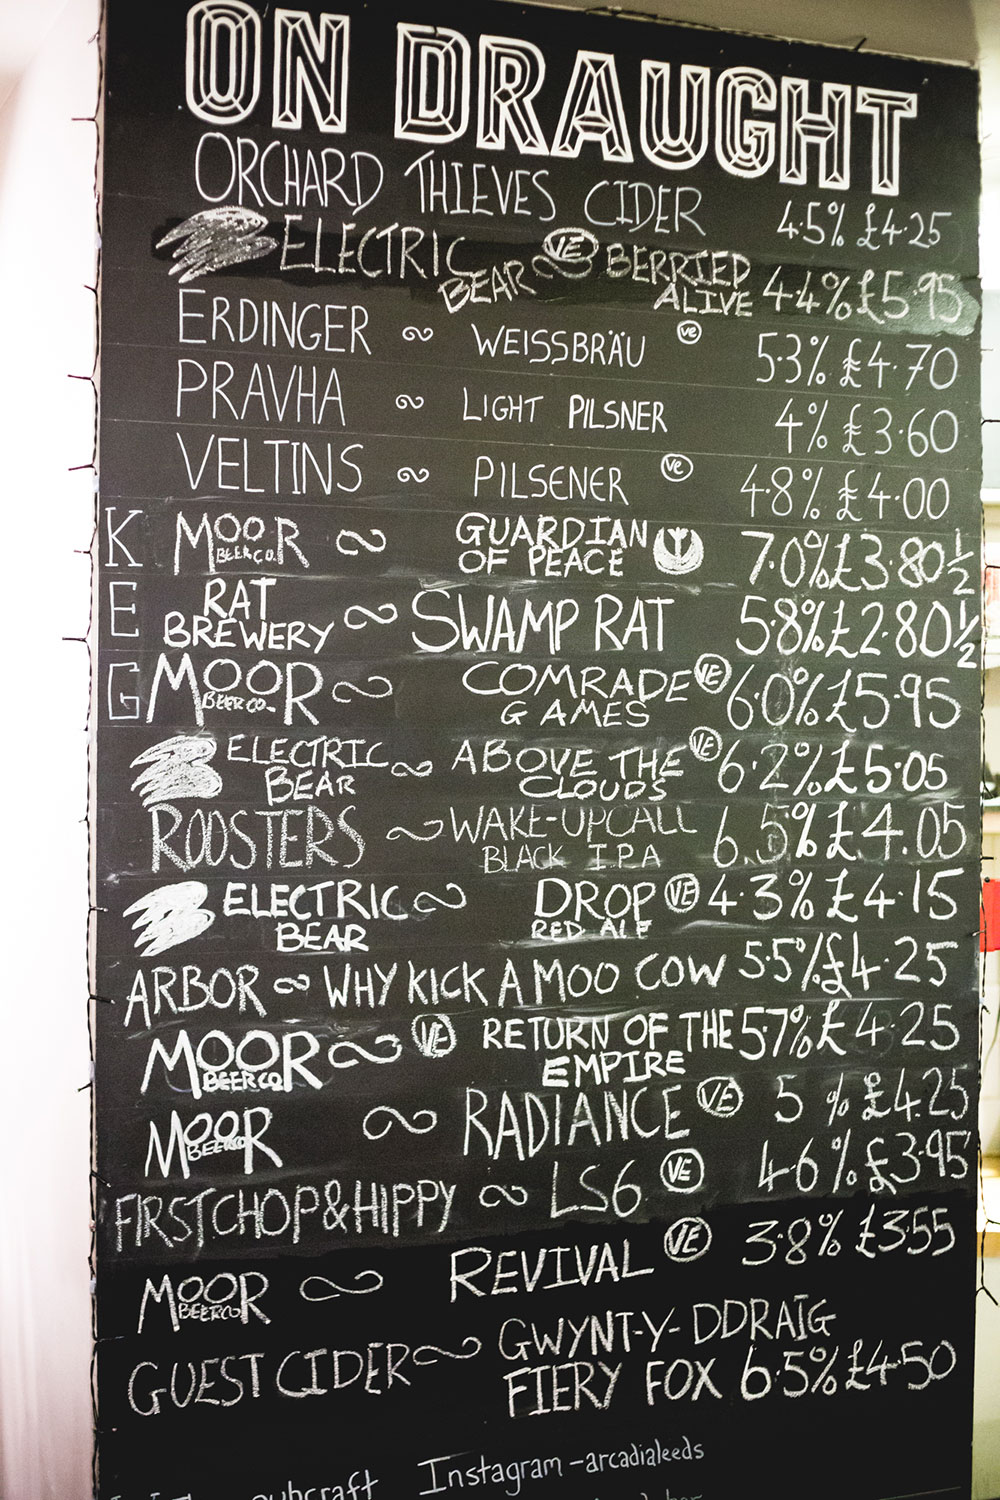 ON DRAUGHT
ORCHARD THIEVES CIDER 4.5% £4.25
ELECTRIC BEAR VE BERRIED ALIVE 4.4% £5.95
ERDINGER WEISSBRÄU ve 5.3% £4.70
PRAVHA LIGHT PILSNER 4% £3.60
VELTINS PILSENER ve 4.8% £4.00
K MOOR BEER CO. GUARDIAN OF PEACE 7.0% £3.80 ½
E RAT BREWERY SWAMP RAT 5.8% £2.80 ½
G MOOR BEER CO. COMRADE GAMES VE 6.0% £5.95
ELECTRIC BEAR ABOVE THE CLOUDS VE 6.2% £5.05
ROOSTERS WAKE-UP CALL BLACK IPA 6.5% £4.05
ELECTRIC BEAR DROP RED ALE VE 4.3% £4.15
ARBOR WHY KICK A MOO COW 5.5% £4.25
MOOR BEER CO VE RETURN OF THE EMPIRE 5.7% £4.25
MOOR BEER CO RADIANCE VE 5% £4.25
FIRST CHOP & HIPPY LS6 VE 4.6% £3.95
MOOR BEER CO REVIVAL VE 3.8% £3.55
GUEST CIDER GWYNT-Y-DDRAIG FIERY FOX 6.5% £4.50
Instagram - arcadialeeds